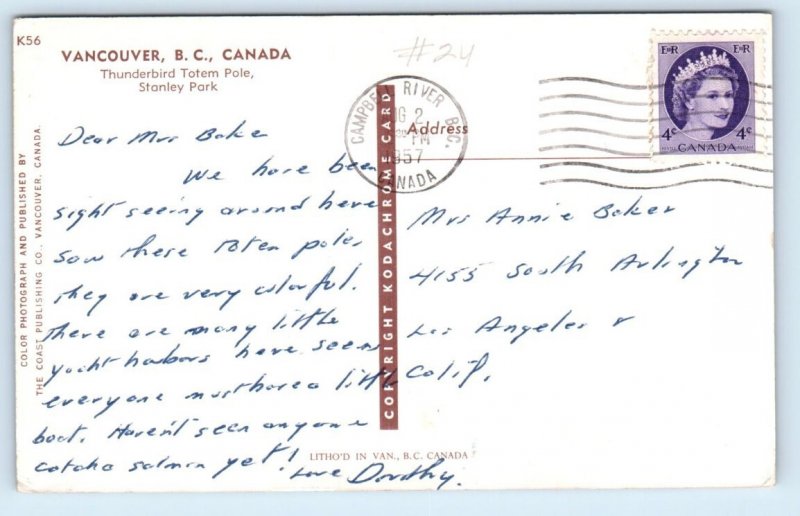 K56
VANCOUVER, B. C., CANADA
Thunderbird Totem Pole,
Stanley Park
#24
CAMPBELL RIVER B.C.
2
PM
1957
CANADA
E R E R
4¢ 4¢
POSTES CANADA POSTAGE
Address
COLOR PHOTOGRAPH AND PUBLISHED BY
THE COAST PUBLISHING CO., VANCOUVER, CANADA.
COPYRIGHT KODACHROME CARD
Dear Mrs Baker
We have been
sight seeing around here
Saw these Totem poles
they are very colorful.
there are many little
yacht harbors here, seems
everyone must have a little
boat. Haven't seen anyone
catch a salmon yet!
Love Dorothy.
Mrs Annie Baker
4155 South Arlington
Los Angeles
Calif.
LITHO'D IN VAN., B.C. CANADA